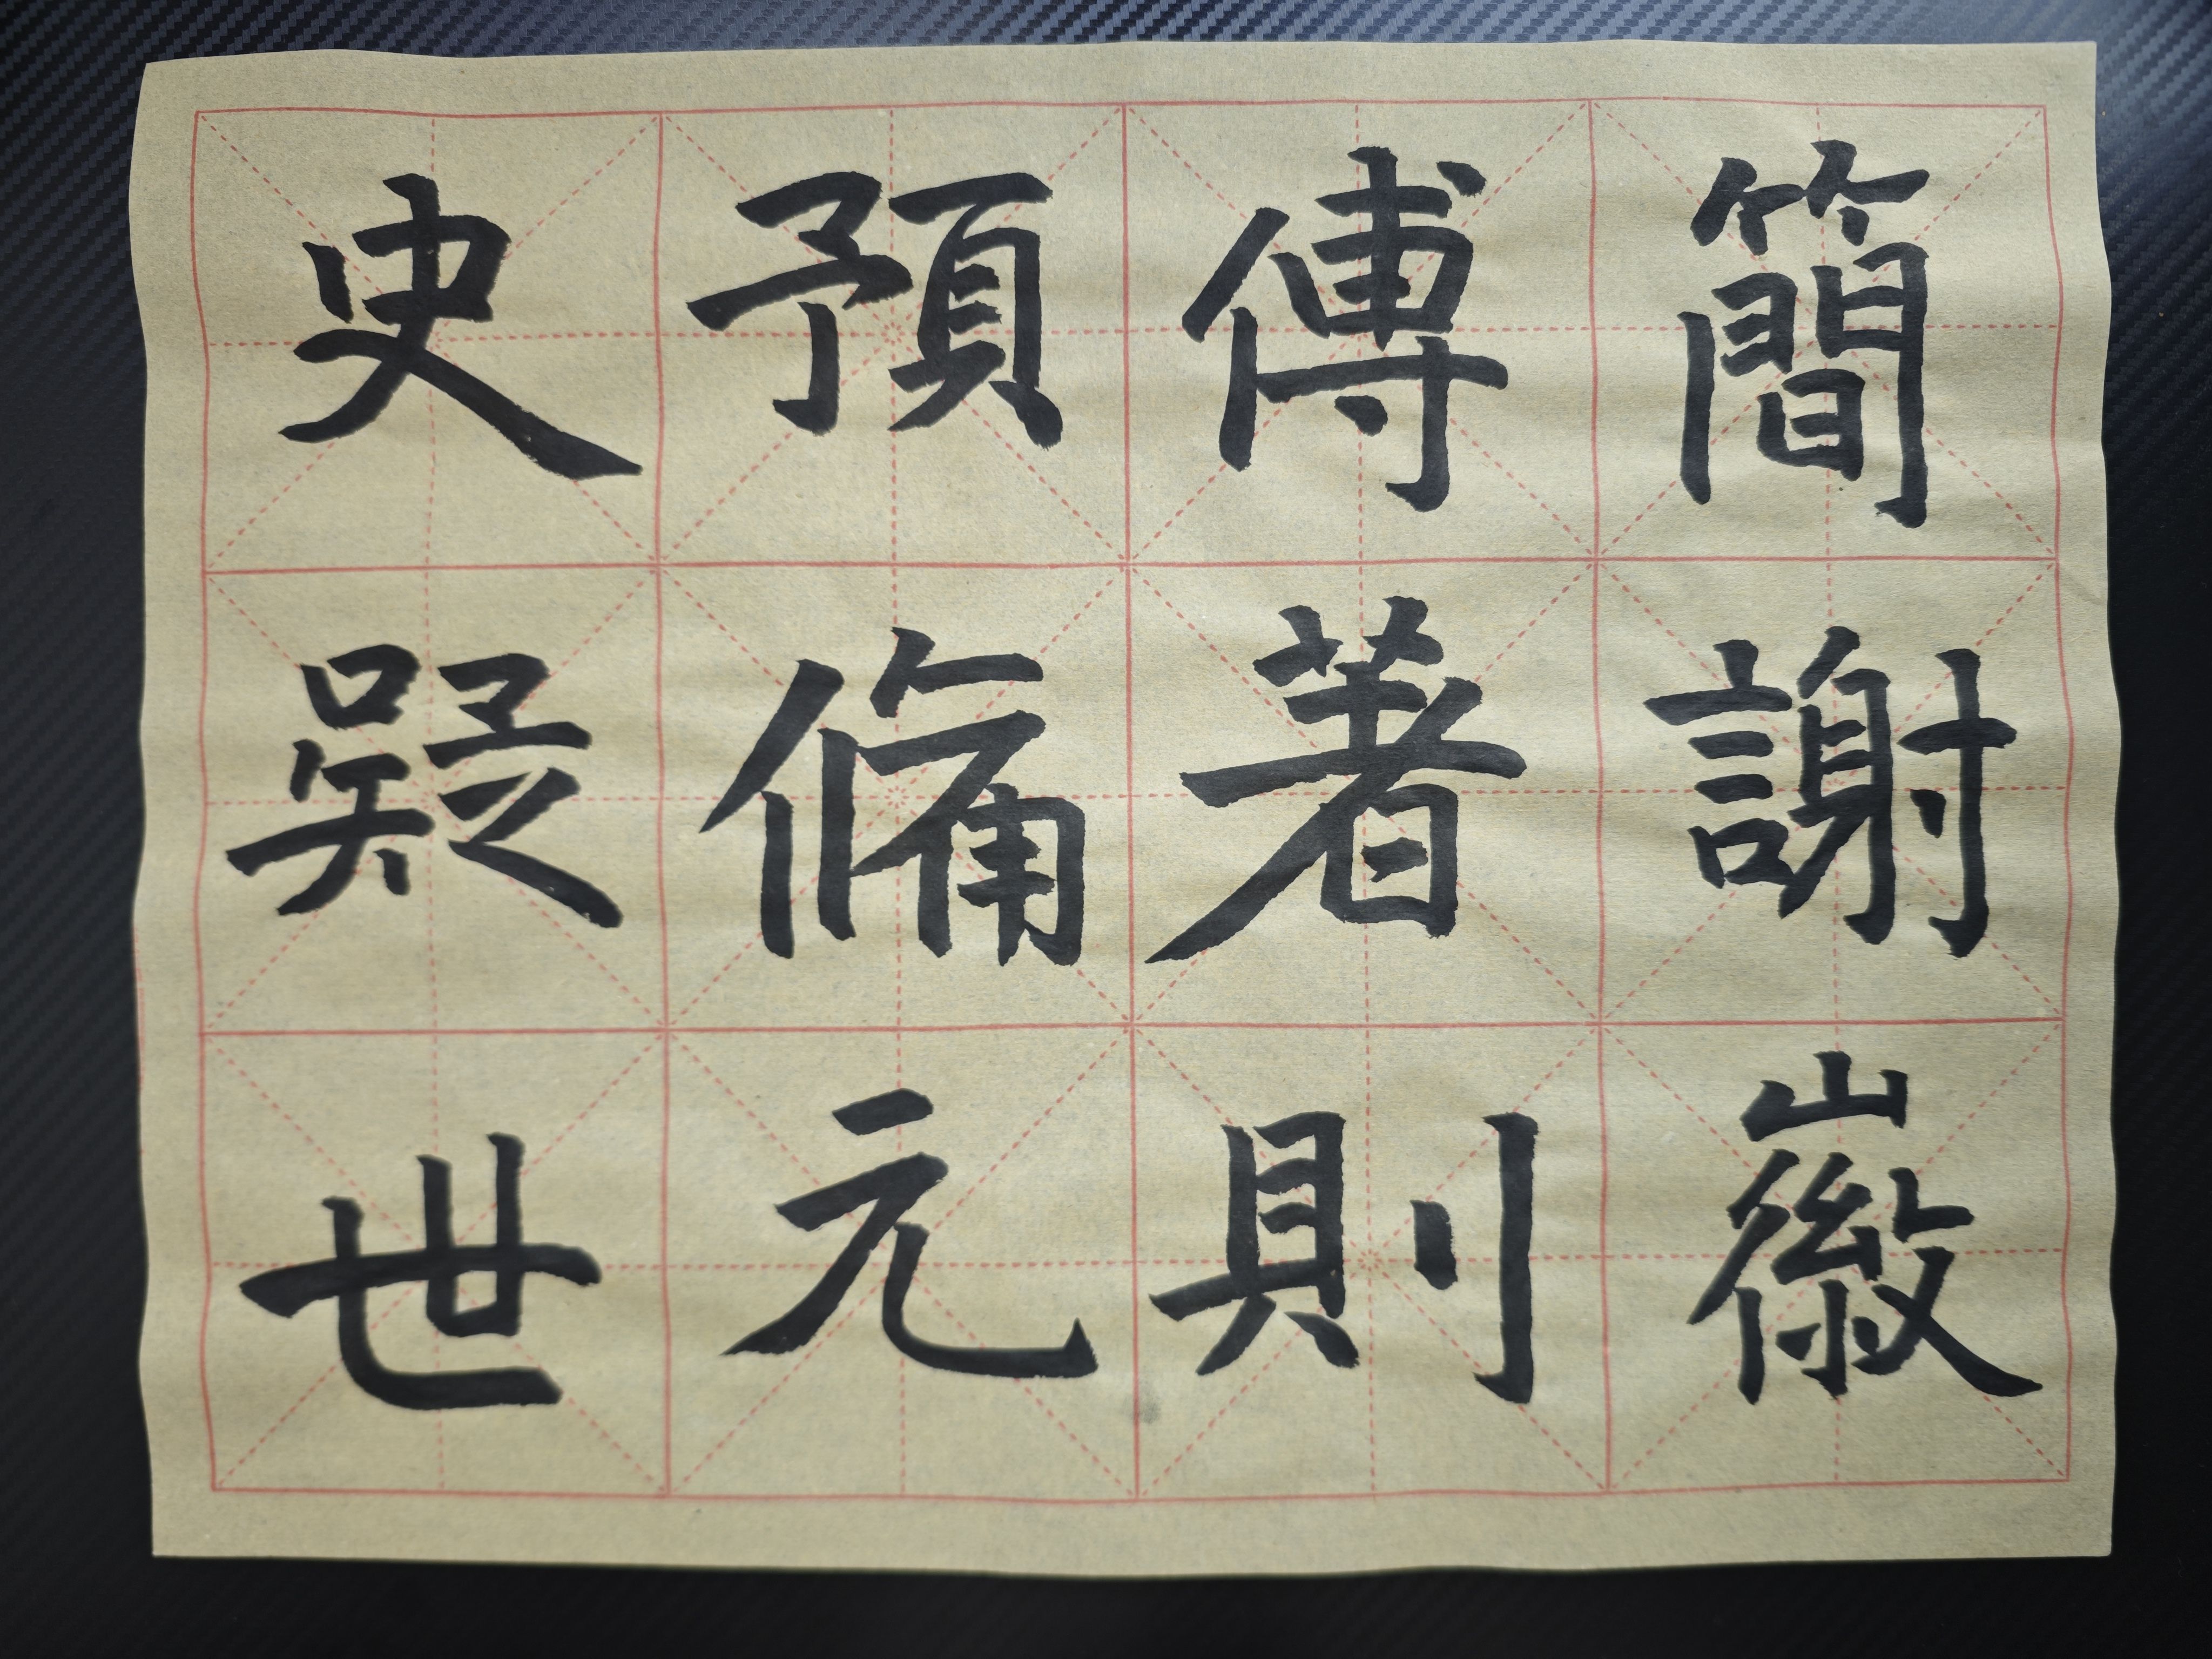 簡謝徽
傅著則
預脩元
史疑世